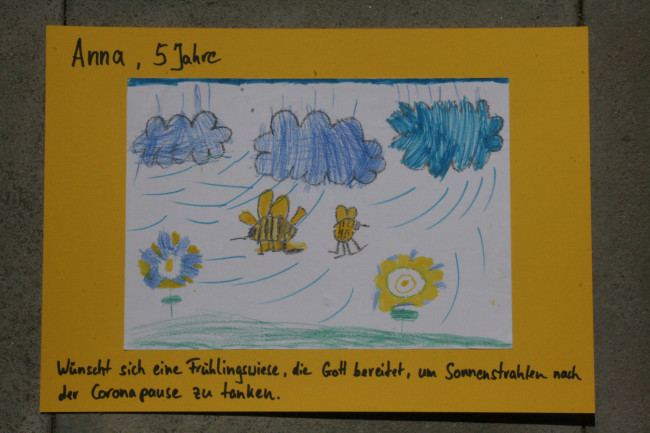 Anna, 5 Jahre
Wünscht sich eine Frühlingswiese, die Gott bereitet, um Sonnenstrahlen nach
der Coronapause zu tanken.